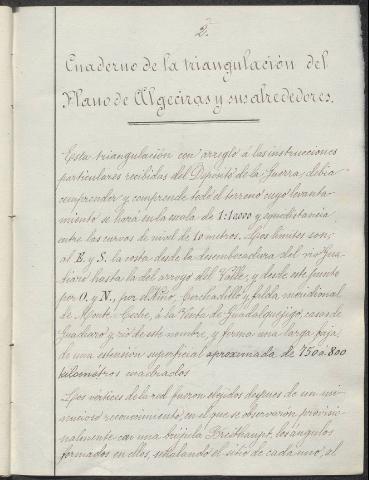 2.
Cuaderno de la triangulación del
Plano de Algeciras y sus alrededores.
Esta triangulación con arreglo á las instrucciones
particulares recibidas del Deposito de la Guerra, debia
comprender y comprende todo el terreno cuyo levanta-
miento se hará en la escala de 1:10000 y equidistancia
entre las curvas de nivel de 10 metros. Los limites son;
al E. y S. la costa desde la desembocadura del rio Gua-
diaro hasta la del arroyo del Valle; y desde este punto
por O. y N., por el Niño, Torchadillo y falda meridional
de Monte-Coche, á la Venta de Guadalquejigo, casas de
Guadiaro y rio de este nombre, y forma una larga faja
de una estension superficial aproximada de 750 a 800
kilometros cuadrados
Los vertices de la red fueron elejidos despues de un mi-
nucioso reconocimiento, en el que se observaron provisio-
nalmente con una brujula Breithaupt, los angulos
formados en ellos, señalando el sitio de cada uno, al